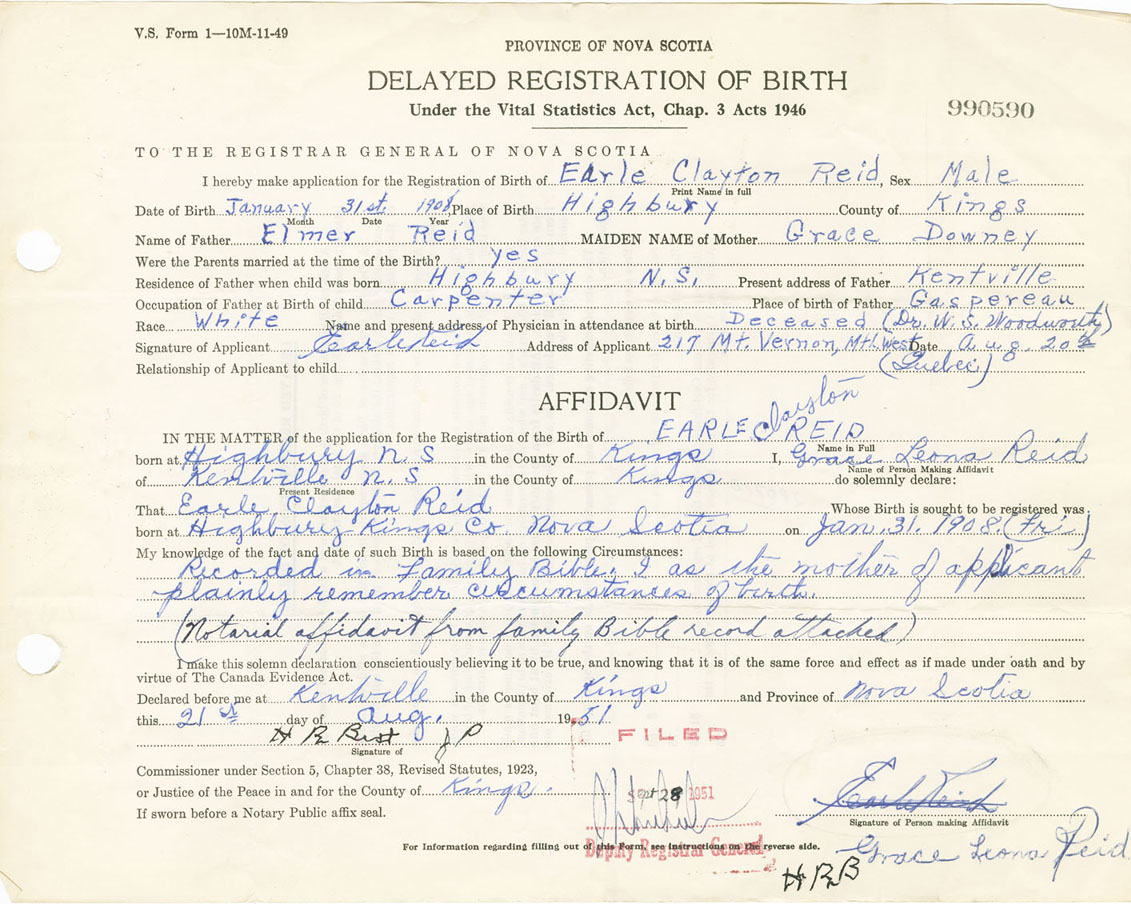 V.S. Form 1—10M-11-49
PROVINCE OF NOVA SCOTIA
DELAYED REGISTRATION OF BIRTH
Under the Vital Statistics Act, Chap. 3 Acts 1946
990590
TO THE REGISTRAR GENERAL OF NOVA SCOTIA
I hereby make application for the Registration of Birth of Earle Clayton Reid, Sex Male
Print Name in full
Date of Birth January 31st 1908 Place of Birth Highbury County of Kings
Month Date Year
Name of Father Elmer Reid MAIDEN NAME of Mother Grace Downey
Were the Parents married at the time of the Birth? yes
Residence of Father when child was born Highbury N.S. Present address of Father Kentville
Occupation of Father at Birth of child Carpenter Place of birth of Father Gaspereau
Race White Name and present address of Physician in attendance at birth Deceased (Dr. W. S. Woodworth)
Signature of Applicant Earle Reid Address of Applicant 217 Mt. Vernon, Mtl. West Date Aug. 20th
(Quebec)
Relationship of Applicant to child
AFFIDAVIT
Clayton
IN THE MATTER of the application for the Registration of the Birth of EARLE C REID
Name in Full
born at Highbury N. S in the County of Kings I, Grace Leona Reid
Name of Person Making Affidavit
of Kentville N. S in the County of Kings do solemnly declare:
Present Residence
That Earle Clayton Reid Whose Birth is sought to be registered was
born at Highbury Kings Co. Nova Scotia on Jan. 31. 1908 (Fri)
My knowledge of the fact and date of such Birth is based on the following Circumstances:
Recorded in Family Bible. I as the mother of applicant
plainly remember circumstances of birth.
(Notarial affidavit from family Bible record attached)
I make this solemn declaration conscientiously believing it to be true, and knowing that it is of the same force and effect as if made under oath and by
virtue of The Canada Evidence Act.
Declared before me at Kentville in the County of Kings and Province of Nova Scotia
this 21st day of Aug. 1951
H R Best J P
Signature of
FILED
Commissioner under Section 5, Chapter 38, Revised Statutes, 1923,
or Justice of the Peace in and for the County of Kings.
Sept 28 1951
Earle Reid
If sworn before a Notary Public affix seal.
Signature of Person making Affidavit
Deputy Registrar General
For Information regarding filling out of this Form, see instructions on the reverse side.
Grace Leona Reid
H R B